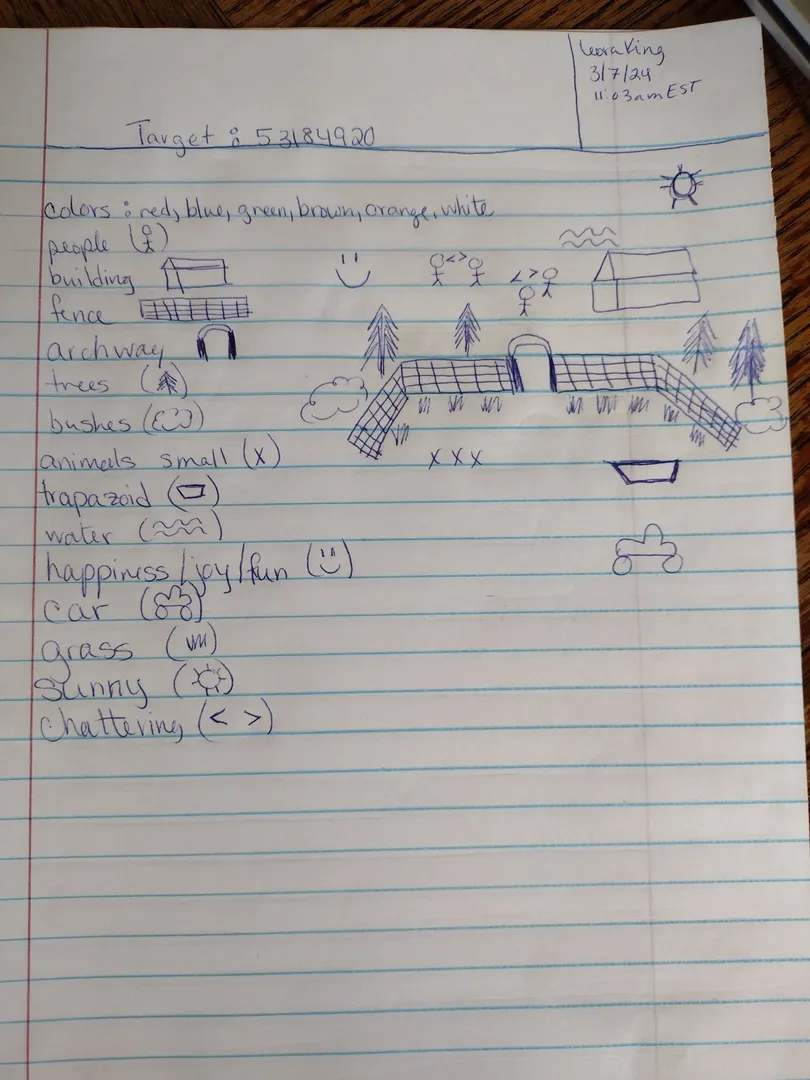 Leora King
3/7/24
11:03am EST
Target: 53184920
colors: red, blue, green, brown, orange, white
people ( )
building
fence
archway
trees ( )
bushes ( )
animals small (x)
trapazoid ( )
water ( )
happiness/joy/fun ( )
car ( )
grass ( )
sunny ( )
chattering (< >)
< >
< >
x x x